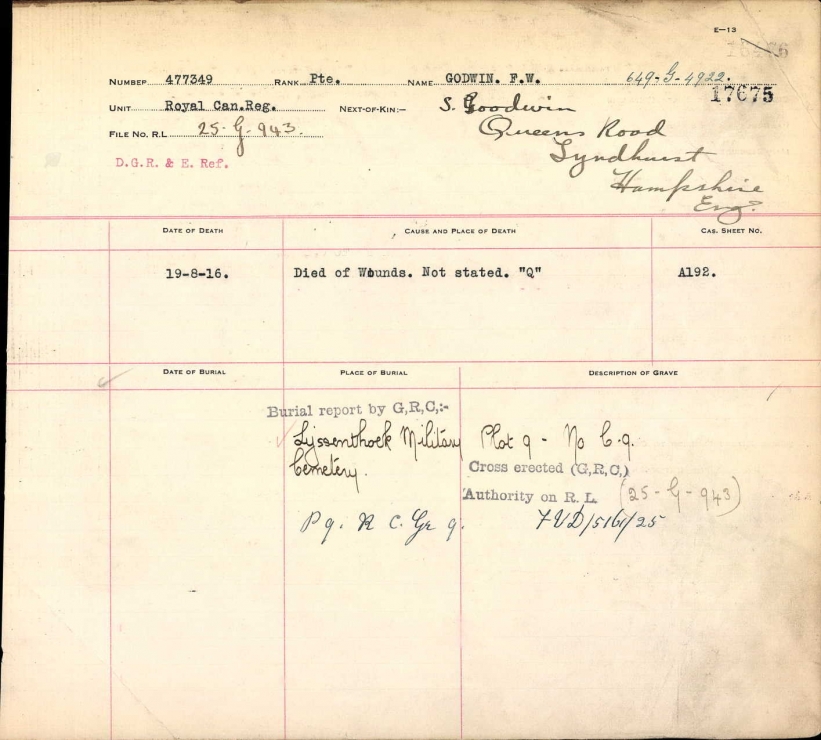 E-13
NUMBER 477349 RANK Pte. NAME GODWIN. F.W. 649-G-4922.
17675
UNIT Royal Can.Reg. NEXT-OF-KIN:- S. Goodwin
Queens Road
FILE NO. R.L 25-G-943.
Lyndhurst
D.G.R. & E. Ref.
Hampshire
Eng.
DATE OF DEATH CAUSE AND PLACE OF DEATH CAS. SHEET NO.
19-8-16. Died of Wounds. Not stated. "Q" A192.
DATE OF BURIAL PLACE OF BURIAL DESCRIPTION OF GRAVE
Burial report by G,R,C,:-
Lijssenthoek Military Plot 9 - No C.9.
Cemetery. Cross erected (G,R,C,)
Authority on R. L. (25-G-943)
P 9. R C. Gr 9.